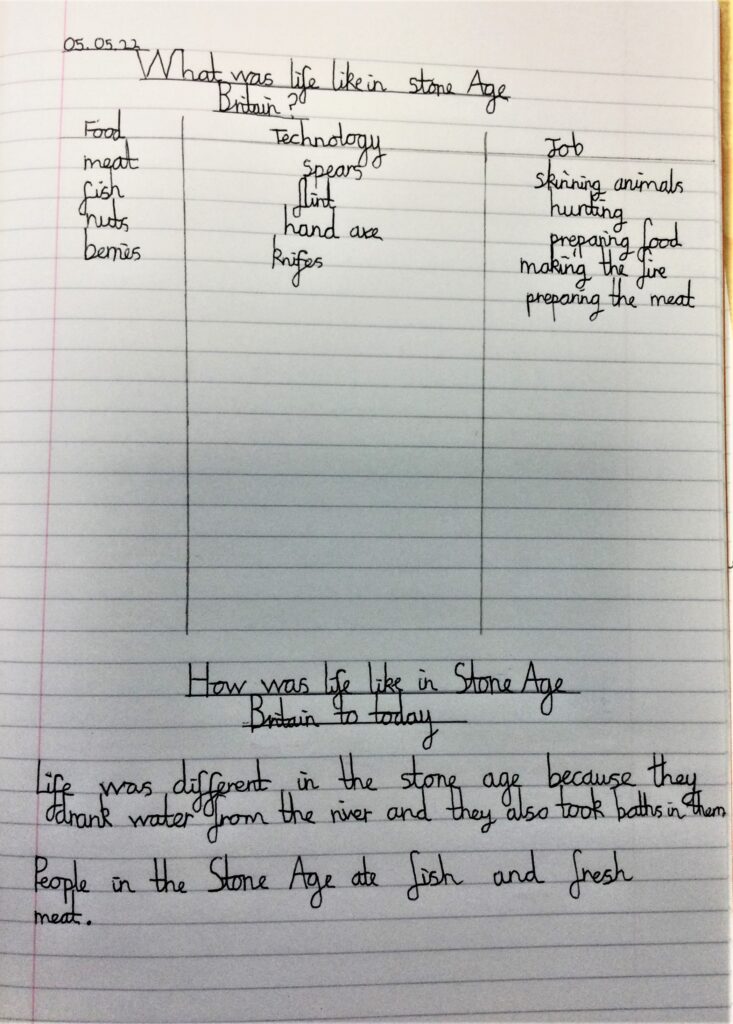 05.05.22
What was life like in stone Age
Britain?
Food Technology Job
meat spears skinning animals
fish flint hunting
nuts hand axe preparing food
berries knifes making the fire
preparing the meat
How was life like in Stone Age
Britain to today
Life was different in the stone age because they
drank water from the river and they also took baths in them
People in the Stone Age ate fish and fresh
meat.